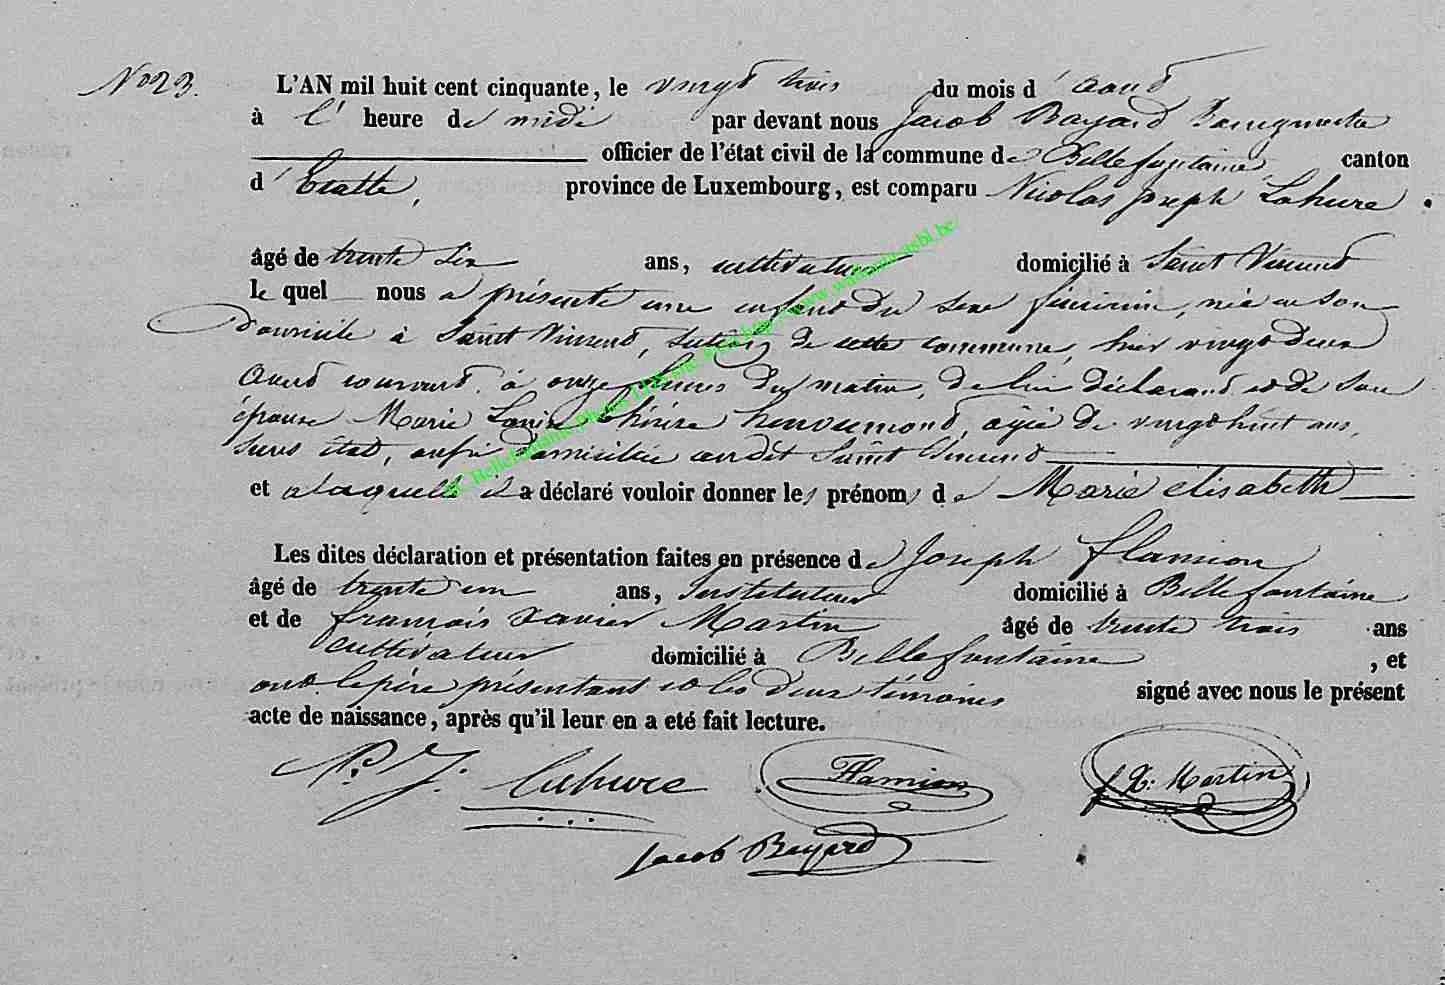 No 23.
L'AN mil huit cent cinquante, le vingt trois du mois d'aout
à l' heure de midi par devant nous Jacob Bayard Bourgmestre
officier de l'état civil de la commune de Bellefontaine, canton
d'Etalle, province de Luxembourg, est comparu Nicolas Joseph Lahure.
âgé de trente six ans, cultivateur domicilié à Saint Vincent
le quel nous a présenté une enfant du sexe féminin, née en son
domicile à Saint Vincent, section de cette commune, hier vingt deux
aout courant à onze heures du matin, de lui déclarant et de son
épouse Marie Louise Thérèse agée de vingt huit ans,
sans état, aussi domiciliée audit Saint Vincent
et a laquelle il a déclaré vouloir donner les prénoms de Marie elisabeth
Les dites déclaration et présentation faites en présence de Joseph flamion
âgé de trente un ans, Instituteur domicilié à Bellefontaine
et de francois Xavier Martin âgé de trente trois ans
cultivateur domicilié à Bellefontaine, et
ont le père présentant et les deux témoins signé avec nous le présent
acte de naissance, après qu'il leur en a eté fait lecture.
N. J. Lahure Flamion f. X: Martin
Jacob Bayard